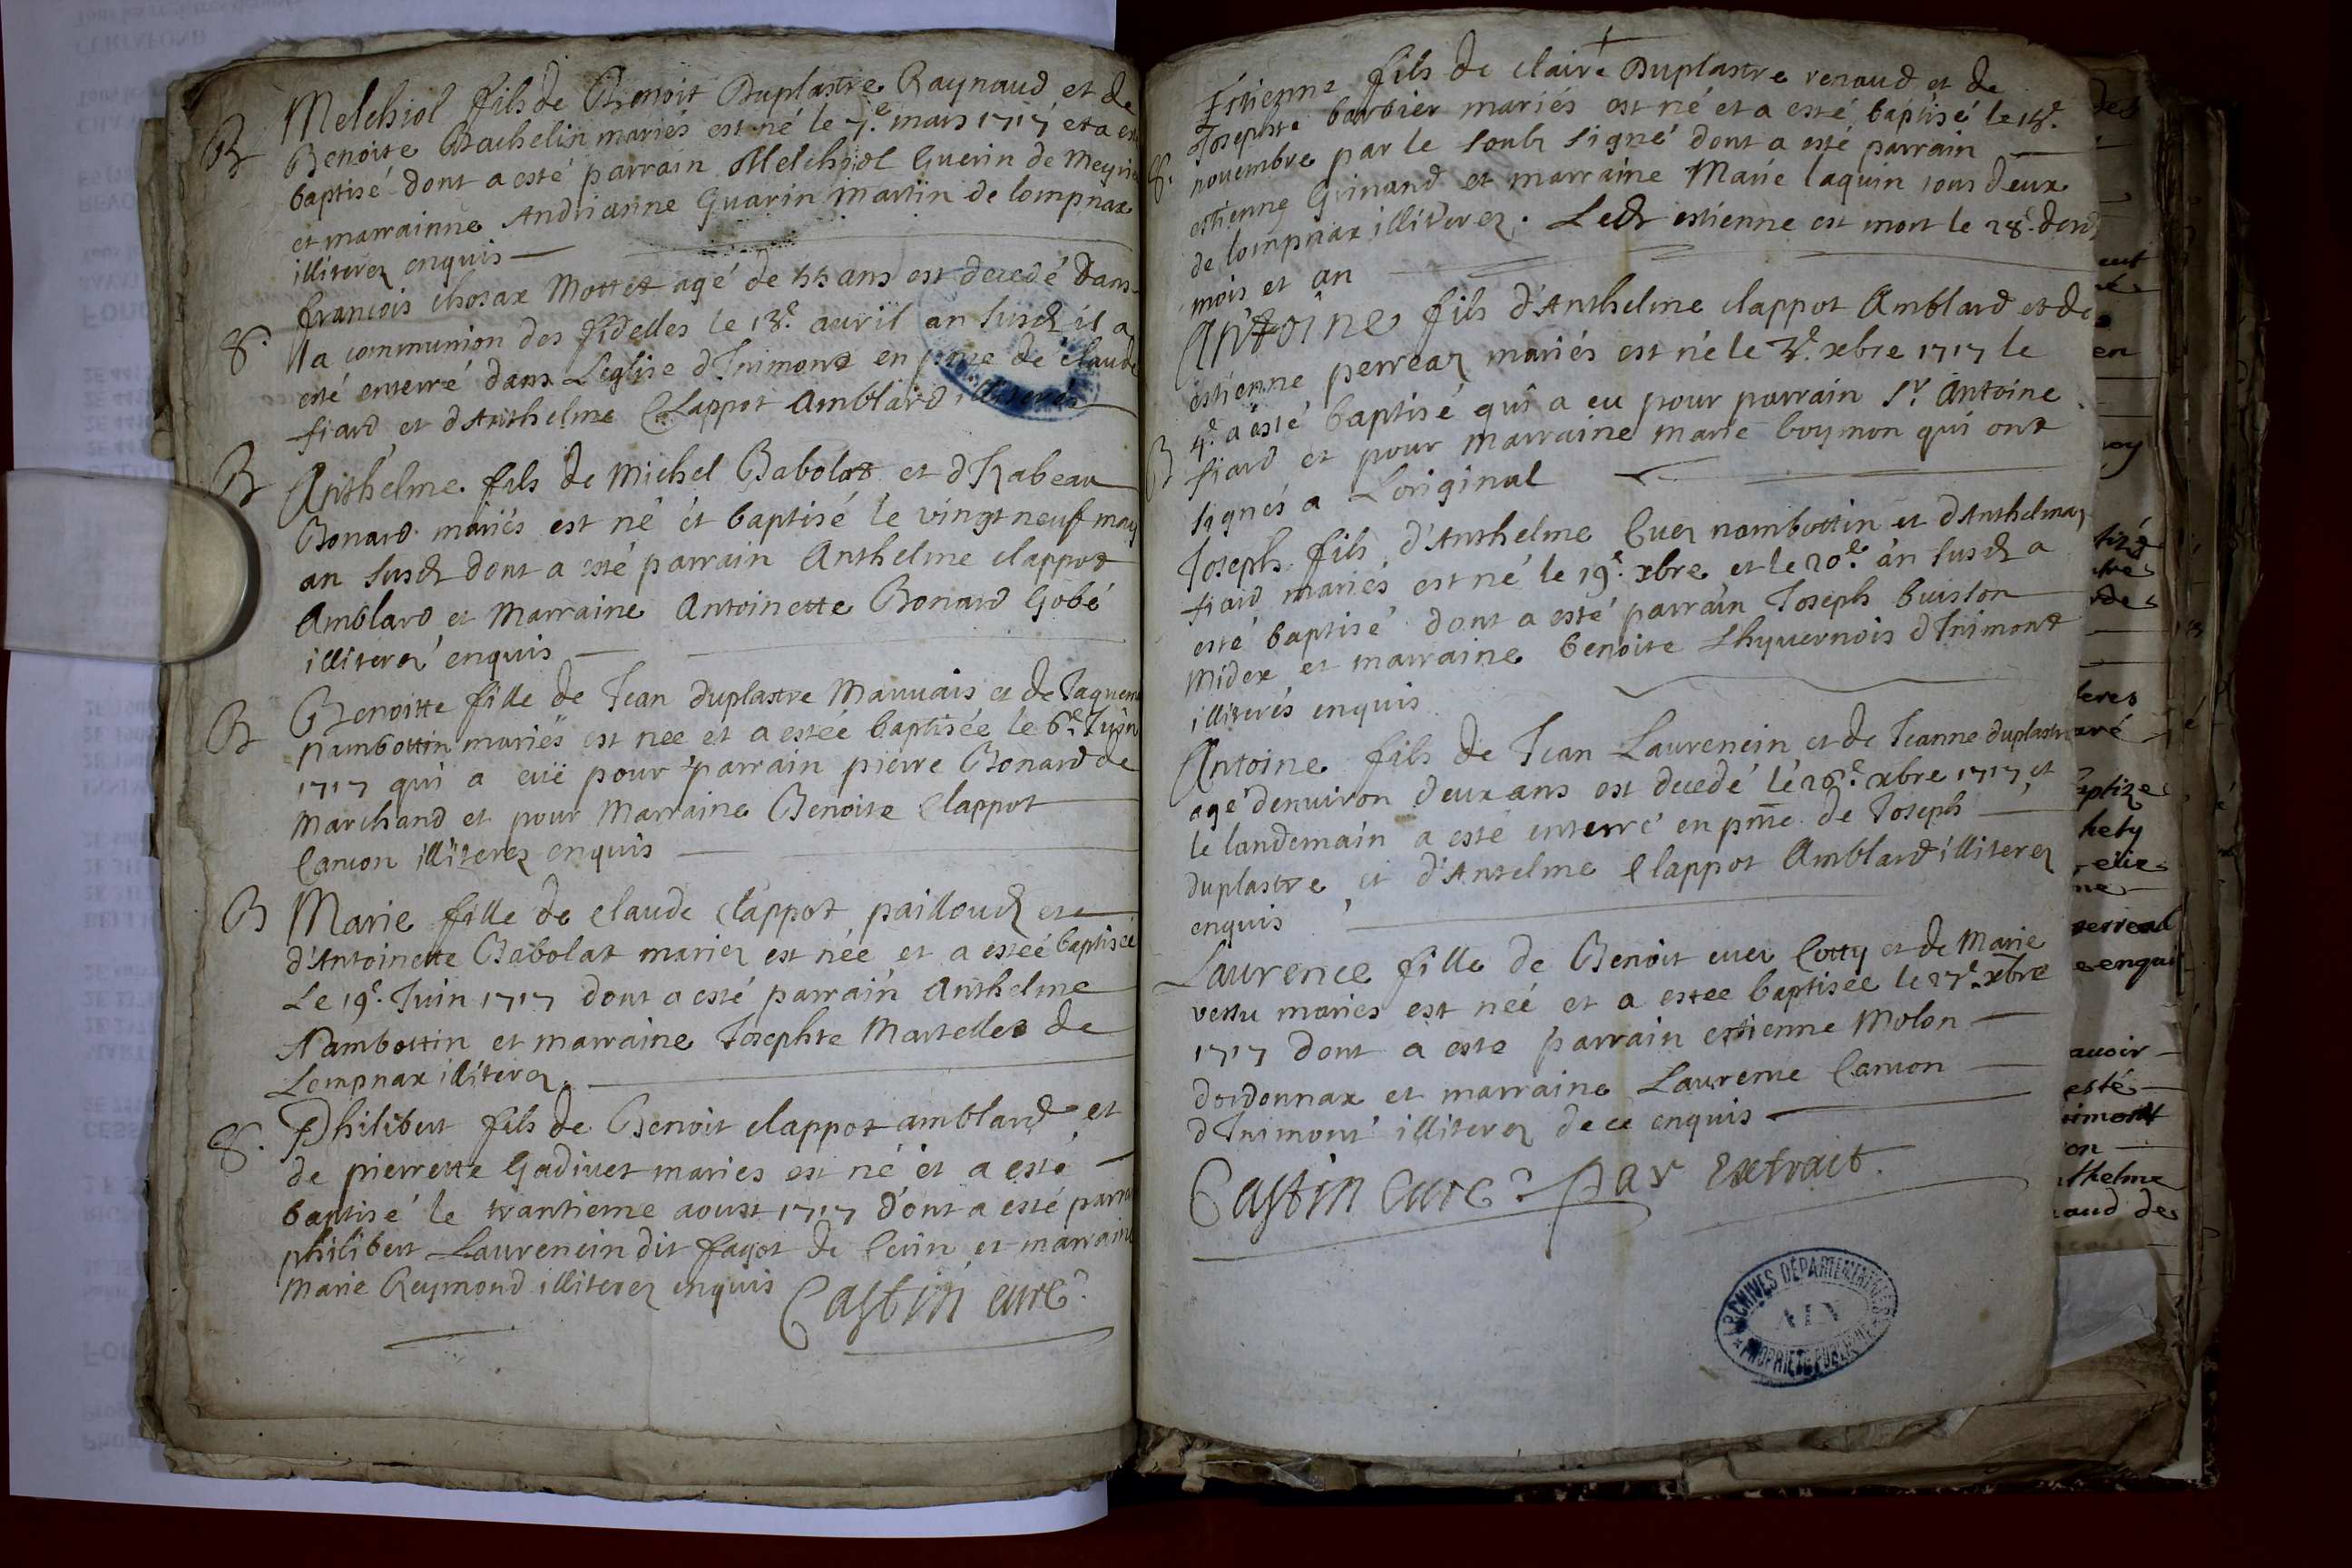 B Melchiol fils de Benoit Duplastre Raynaud et de
Benoite Bachelin mariés est né le 7.e mars 1717 et a esté
baptisé dont a esté parrain Melchiol Guerin de
et marrainne Andrianne Guarin Martin de lompnax
illiterez enquis
S. francois chosax Mottet agé de 55 ans est decedé dans
la communion des fidelles le 18.e auril an susd il a
esté enterré dans Leglise dInimont en pnce de claude
fiard et dAnthelme Clappot Amblard illiterés
B Anthelme fils de Michel Babolat et dIzabeau
Bonard mariés est né et baptisé le vingt neuf may
an susd dont a esté parrain Anthelme clappot
Amblard et Marraine Antoinette Bonard Gobé
illiterez enquis
B Benoitte fille de Jean duplastre Mauuais et de Jaquem
Nambottin mariés est nee et a estéé baptisée le 6.e Juin
1717 qui a euë pour parrain pierre Bonard de
Marchand et pour Marraine Benoite Clappot
Canon illiterez enquis
B Marie fille de claude clappot pailloud et
d'Antoinette Babolat mariez est née et a estéé baptiséé
Le 19.e Juin 1717 dont a esté parrain Anthelme
Nambottin et marraine Josephte Martellet de
Lompnax illiterez
S. Philibert fils de Benoit clappot amblard et
de pierrette Gadiuet maries est né et a esté
baptisé le trantieme aoust 1717 dont a esté parra
philibert Laurencin dit fagot de Ceÿin et marraine
Marie Reymond illiterez enquis Castin curé
Estienne fils de claire Duplastre renaud et de
Josephte barbier mariés est né et a esté baptisé le 18.e
S. nouembre par le soub signé dont a esté parrain
estienne Grinand et marraine Marie laquin tous deux
de lompnax illiterez. Led estienne est mort le 28.e dud
mois et an
Antoine fils d'Anthelme clappot Amblard et de
estienne perreaz mariés est né le 3.e xbre 1717 le
4.e a esté baptisé qui a eu pour parrain Sr. Antoine
B fiard et pour Marraine Marie boymon qui ont
signés a Loriginal
Joseph fils d'Anthelme Cuez nambottin et dAnthelmaz
fiard mariés est né le 19.e xbre et le 20.e an susd a
esté baptisé dont a esté parrain Joseph buisson
Midex et marraine benoite Lhyuernois dInimont
illiterés enquis
Antoine fils de Jean Laurencin et de Jeanne duplastre
agé denuiron deux ans est decedé le 26.e xbre 1717 et
le landemain a esté enterré en pnce de Joseph
duplastre et d'Antelme Clappot Amblard illiterez
enquis
Laurence fille de Benoit cuez Cotty et de Marie
vettu maries est néé et a estee baptisée le 27.e xbre
1717 dont a esté parrain estienne Molon
dordonnax et marraine Laurence Canon
dInimont illiterez de ce enquis
Castin Curé par Extrait
ARCHIVES DÉPARTEMENTALES
AIN
PROPRIÉTÉ PUBLIQUE